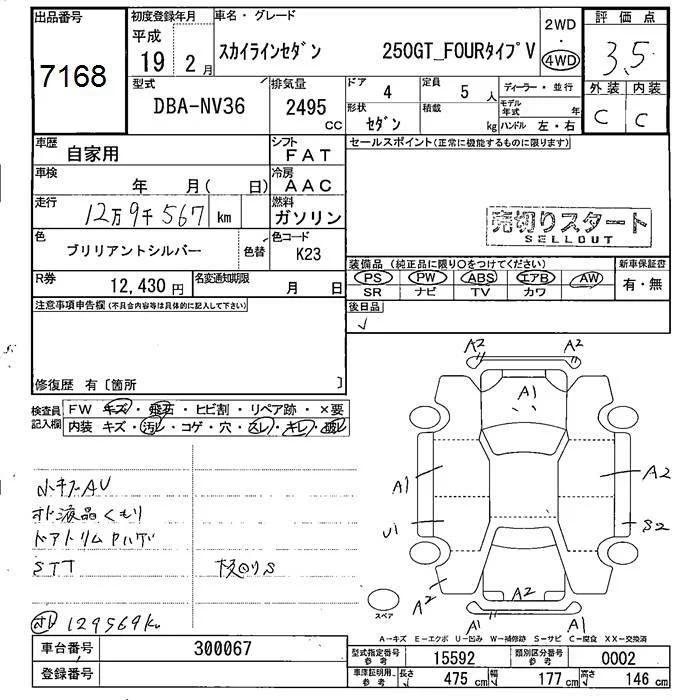 出品番号
7168
初度登録年月
平成
19 2 月
車名・グレード
スカイラインセダン 250GT_FOURタイプV
2WD
・
4WD
評価点
3.5
外装 内装
C C
型式
DBA-NV36
排気量
2495
CC
ドア 4
定員 5 人
形状
セダン
積載
kg
ディーラー・並行
モデル年式 年
ハンドル 左・右
車歴
自家用
シフト
FAT
車検
年 月( 日)
冷房
AAC
走行
12万9千567 km
燃料
ガソリン
色
ブリリアントシルバー
色替
色コード
K23
R券
12,430 円
名変通知期限
月 日
セールスポイント(正常に機能するものに限ります)
売切りスタート
SELLOUT
装備品(純正品に限り○をつけてください)
PS PW ABS エアB AW
SR ナビ TV カワ
新車保証書
有・無
後日品
注意事項申告欄(不具合内容等は具体的に記入して下さい)
修復歴 有〔箇所 〕
検査員
記入欄
FW キズ・飛石・ヒビ割・リペア跡・×要
内装 キズ・汚レ・コゲ・穴・スレ・キレ・破レ
小キズAU
オド液晶くもり
ドアトリムヤハゲ
STT
板回りS
オド 129569km
A2 A2
A1
A1
A2
U1
S2
A2
A2
A1
A1
スペア
A-キズ E-エクボ U-凹み W-補修跡 S-サビ C-腐食 XX-交換済
車台番号
300067
登録番号
型式指定番号
参考
15592
類別区分番号
参考
0002
車庫証明用、
参考
長さ 475 cm
幅 177 cm
高さ 146 cm